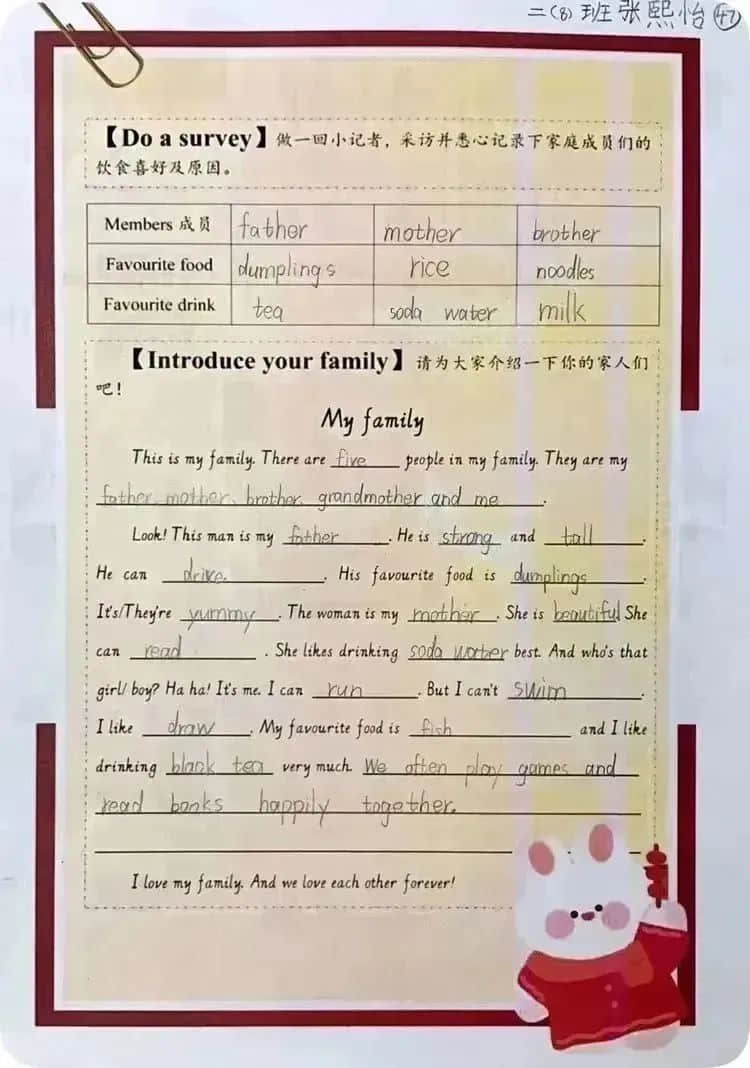 二(8)班张熙怡 47
【Do a survey】做一回小记者，采访并悉心记录下家庭成员们的
饮食喜好及原因。
Members 成员 father mother brother
Favourite food dumplings rice noodles
Favourite drink tea soda water milk
【Introduce your family】请为大家介绍一下你的家人们
吧！
My family
This is my family. There are five people in my family. They are my
father、mother、brother、grandmother and me.
Look! This man is my father. He is strong and tall.
He can drive. His favourite food is dumplings.
It's/They're yummy. The woman is my mother. She is beautiful. She
can read. She likes drinking soda worter best. And who's that
girl/ boy? Ha ha! It's me. I can run. But I can't swim.
I like draw. My favourite food is fish and I like
drinking blank tea very much. We often play games and
read books happily together.
I love my family. And we love each other forever!